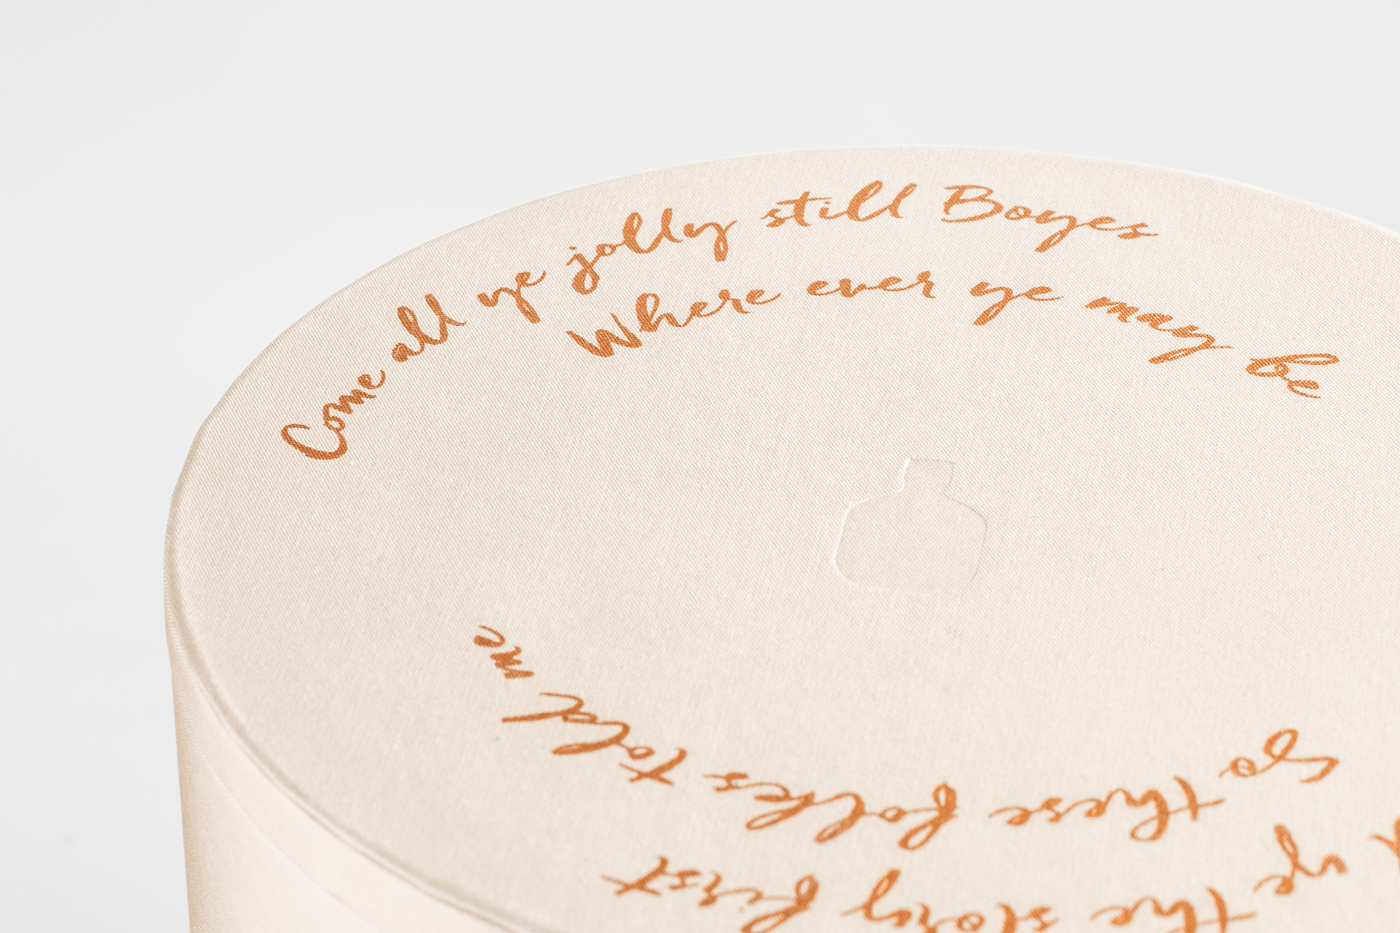 Come all ye jolly still Boyes
Where ever ye may be
So these folkes told me
ye the story first